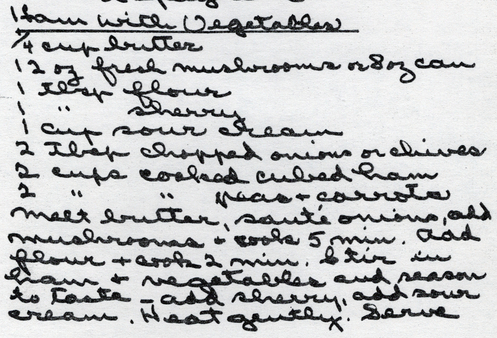 Ham with Vegetables
1/4 cup butter
12 oz fresh mushrooms or 8 oz can
1 tbsp flour
1 " sherry
1 cup sour cream
2 Tbsp chopped onions or chives
2 cups cooked cubed ham
2 " " peas + carrots
Melt butter, sauté onions, add
mushrooms + cook 5 min. Add
flour + cook 2 min. Stir in
ham + vegetables and season
to taste - add sherry, add sour
cream. Heat gently. Serve